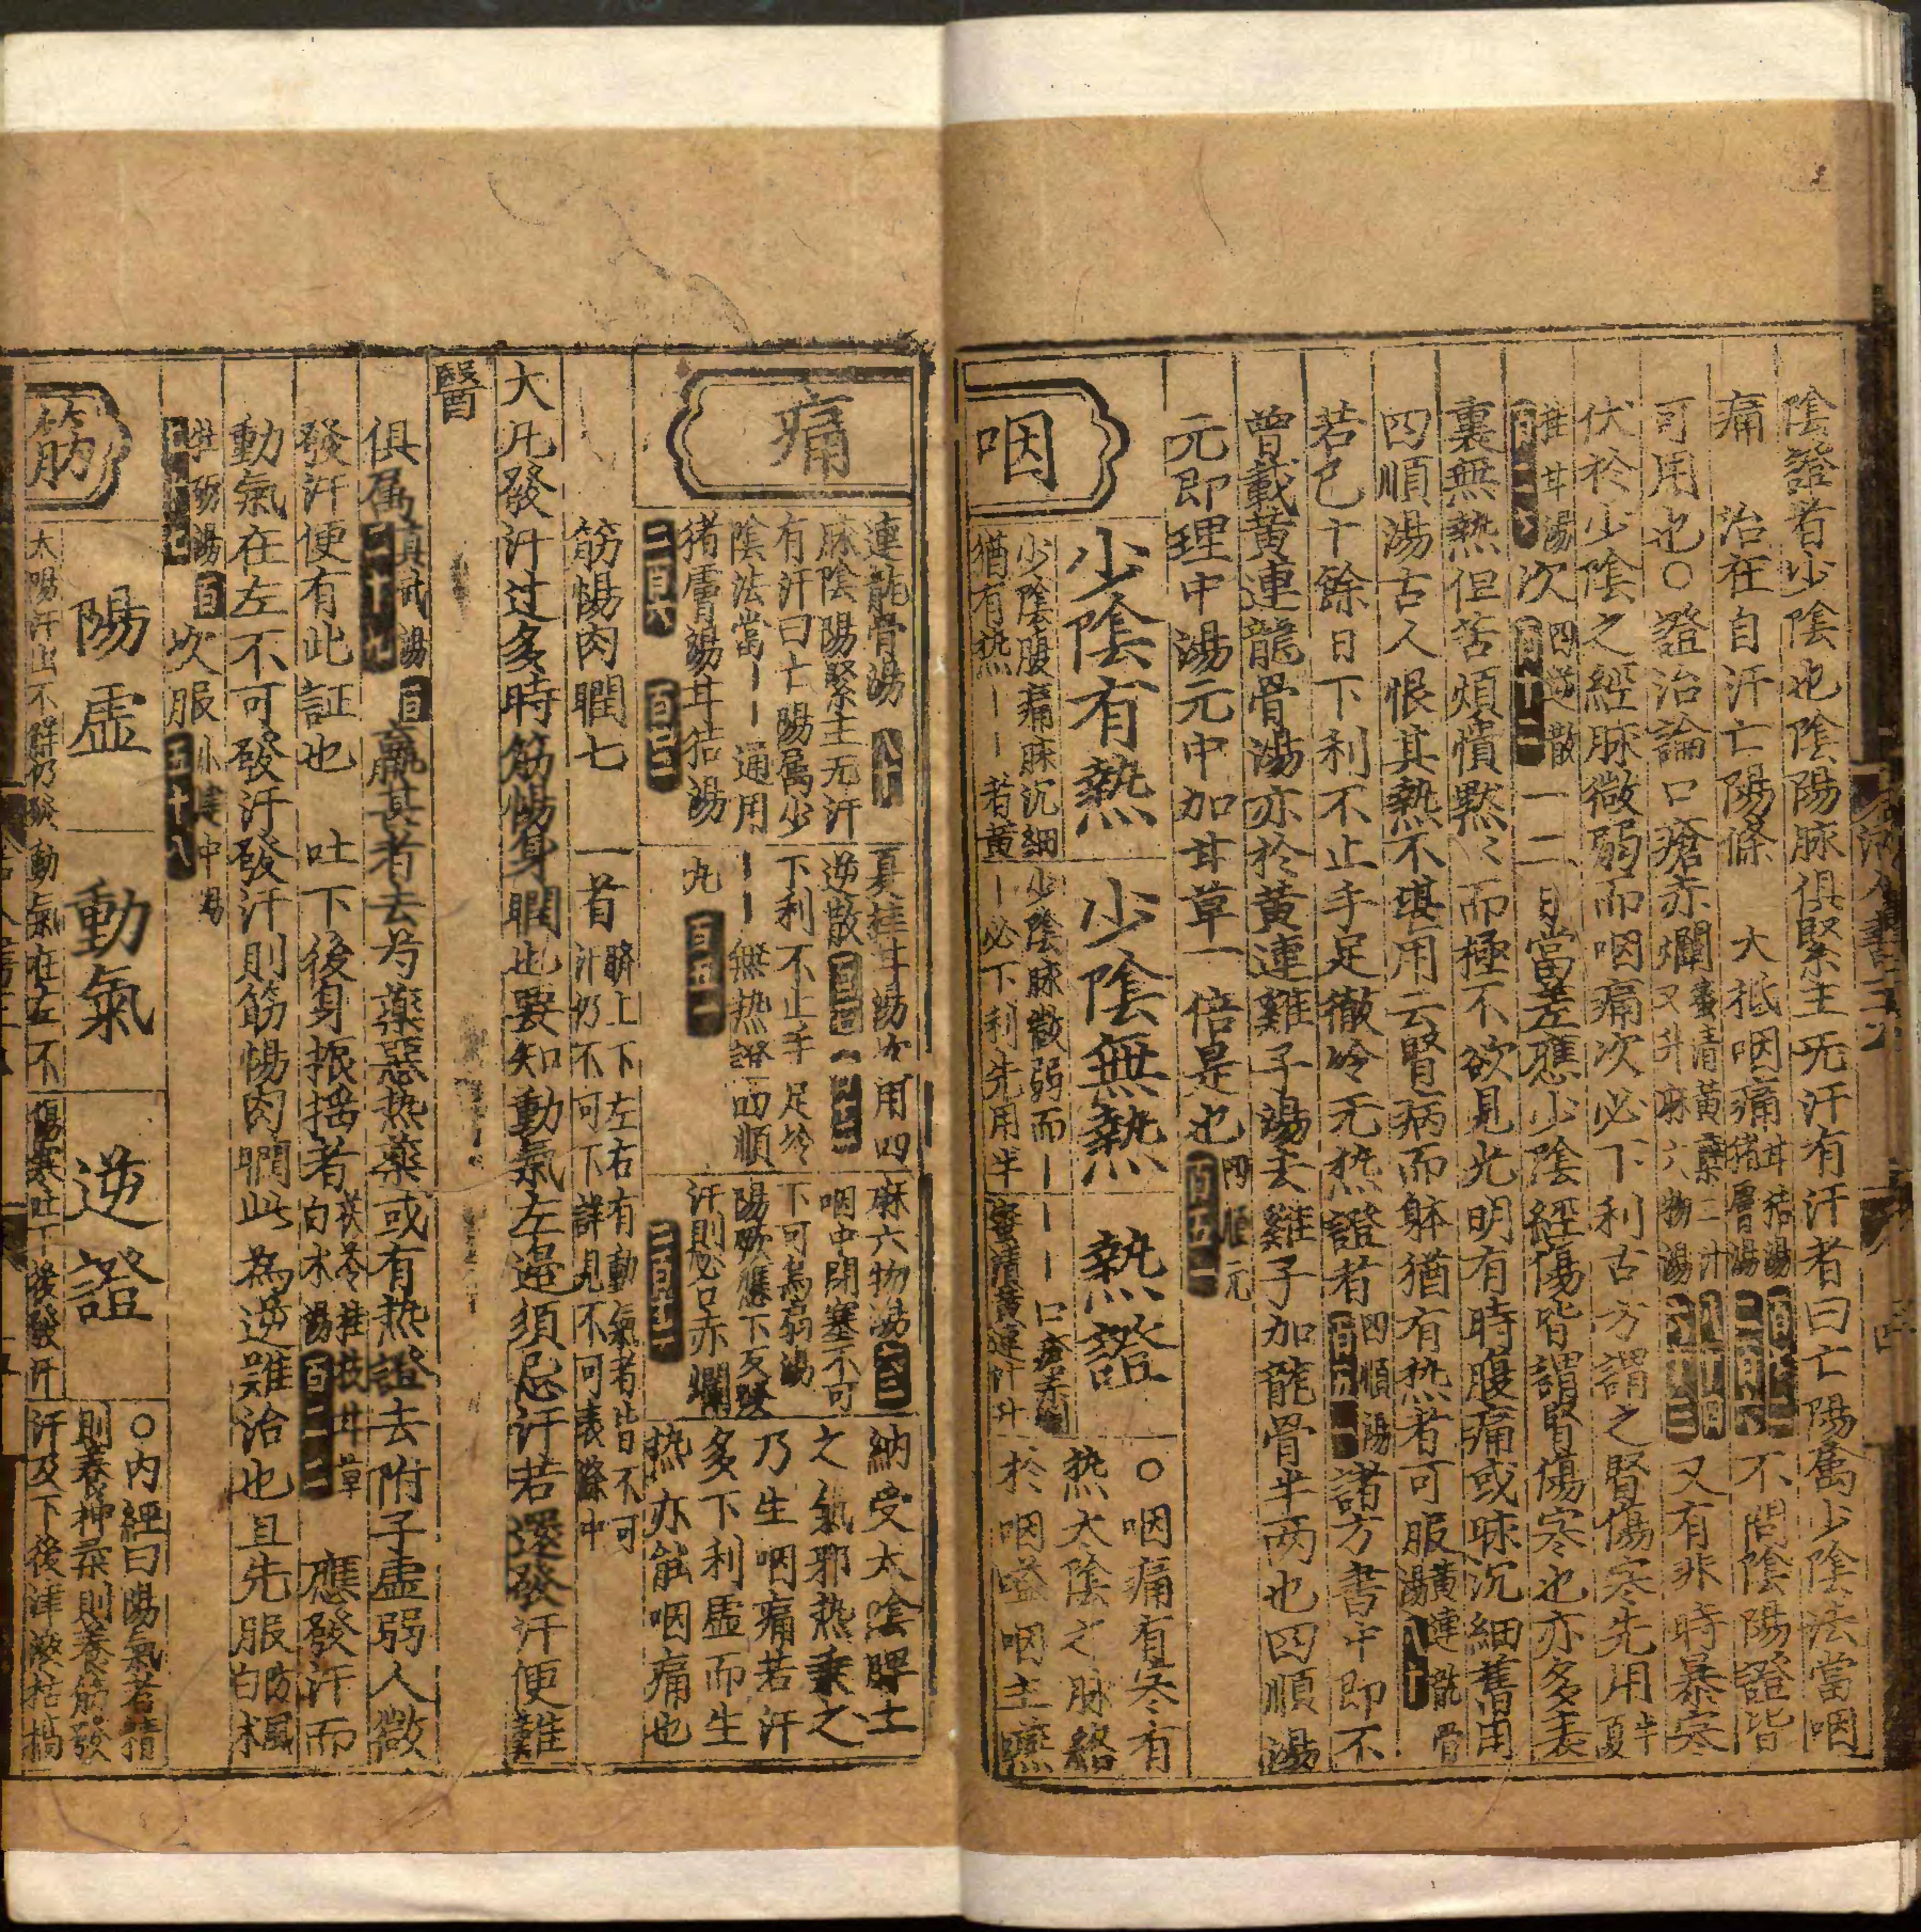 陰證者少陰也陰陽脉俱緊主无汗有汗者曰亡陽屬少陰法當咽
痛　治在自汗亡陽條　大抵咽痛甘桔湯猪膚湯不問陰陽證皆
可用也○證治論口瘡赤爛蜜清黃蘗二汁又升麻六物湯又有非時暴寒
伏於少陰之經脉微弱而咽痛次必下利古方謂之腎傷寒先用半夏
桂甘湯次四逆散一二日當差應少陰經傷皆謂腎傷寒也亦多表
裏無熱但苦煩憒默々而極不欲見光明有時腹痛或脉沉細舊用
四順湯古人恨其熱不堪用云腎病而躰猶有热者可服黃連龍骨湯八十
若已十餘日下利不止手足徹冷无热證者四順湯諸方書中即不
曾載黃連龍骨湯亦於黃連雞子湯去雞子加龍骨半两也四順湯
元即理中湯元中加甘草一倍是也四順元百五一
咽
少陰有熱
少陰腹痛脉沉細
猶有热｜｜者黃
少陰無熱
少陰脉微弱而｜
｜必下利先用半
熱證
｜｜口瘡赤爛
蜜清黃連
○咽痛有寒有
热太陰之脉絡
於咽嗌咽主
痛
連龍骨湯八十
麻陰陽緊主无汗
有汗曰亡陽属少
陰法當｜｜通用
猪膚湯甘桔湯
二百六　百三一
夏桂甘湯次用四
逆散
下利不止手足冷
｜｜無热證四順
丸百五一
麻六物湯六三
咽中閉塞不可
下可烏扇湯
汗則必口赤爛
納受太陰脾土
之氣邪熱乘之
乃生咽痛若汗
多下利虛而生
热亦能咽痛也
筋惕肉瞤七　一首臍上下左右有動氣者皆不可
汗仍不可下詳見不可表條中
大凡發汗过多時筋惕身瞤也要知動氣左邉須忌汗若還發汗便難
醫
俱属真武湯百二十九羸甚者去芍藥惡热藥或有热證去附子虛弱人微
發汗便有此証也　吐下後身振揺者茯苓桂枝甘草白术湯百二二　應發汗而
動氣在左不可發汗發汗則筋惕肉瞤此為逆難治也且先服防風白术
牡蛎湯次服小建中湯五十八
筋
陽虛
太陽汗出不解仍發
動氣
動氣在左不
逆證
傷寒吐下後發汗
○内經曰陽氣者精
則養神柔則養筋發
汗及下後津液枯槁